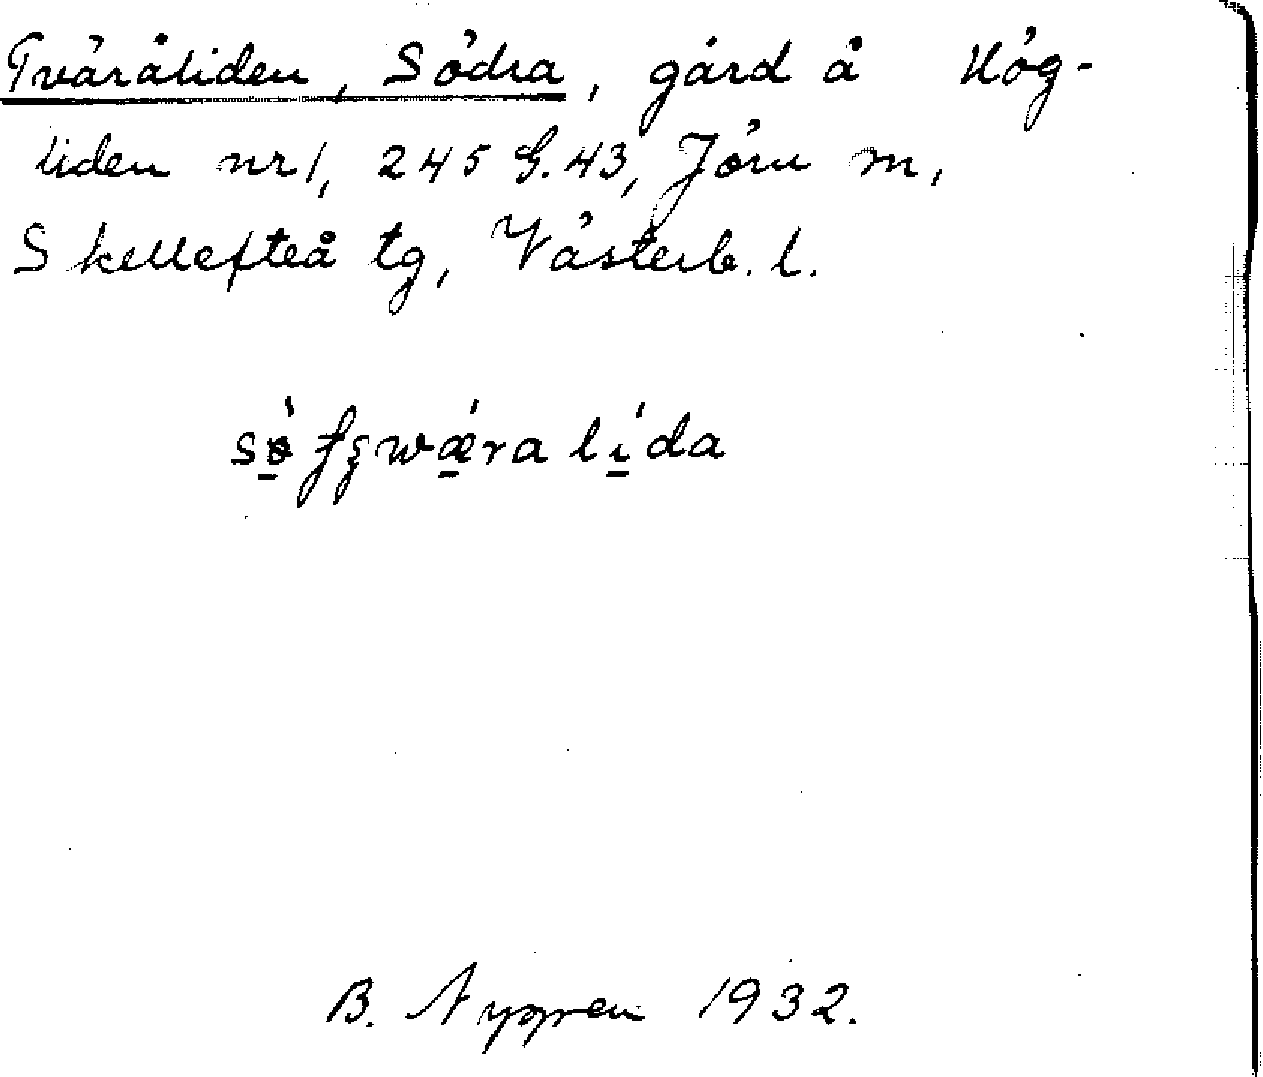 Tväråliden, Södra, gård å Hög-
liden nr 1, 245 G. 43, Jörn sn,
Skellefteå tg, Västerb. l.
B. Nygren 1932.